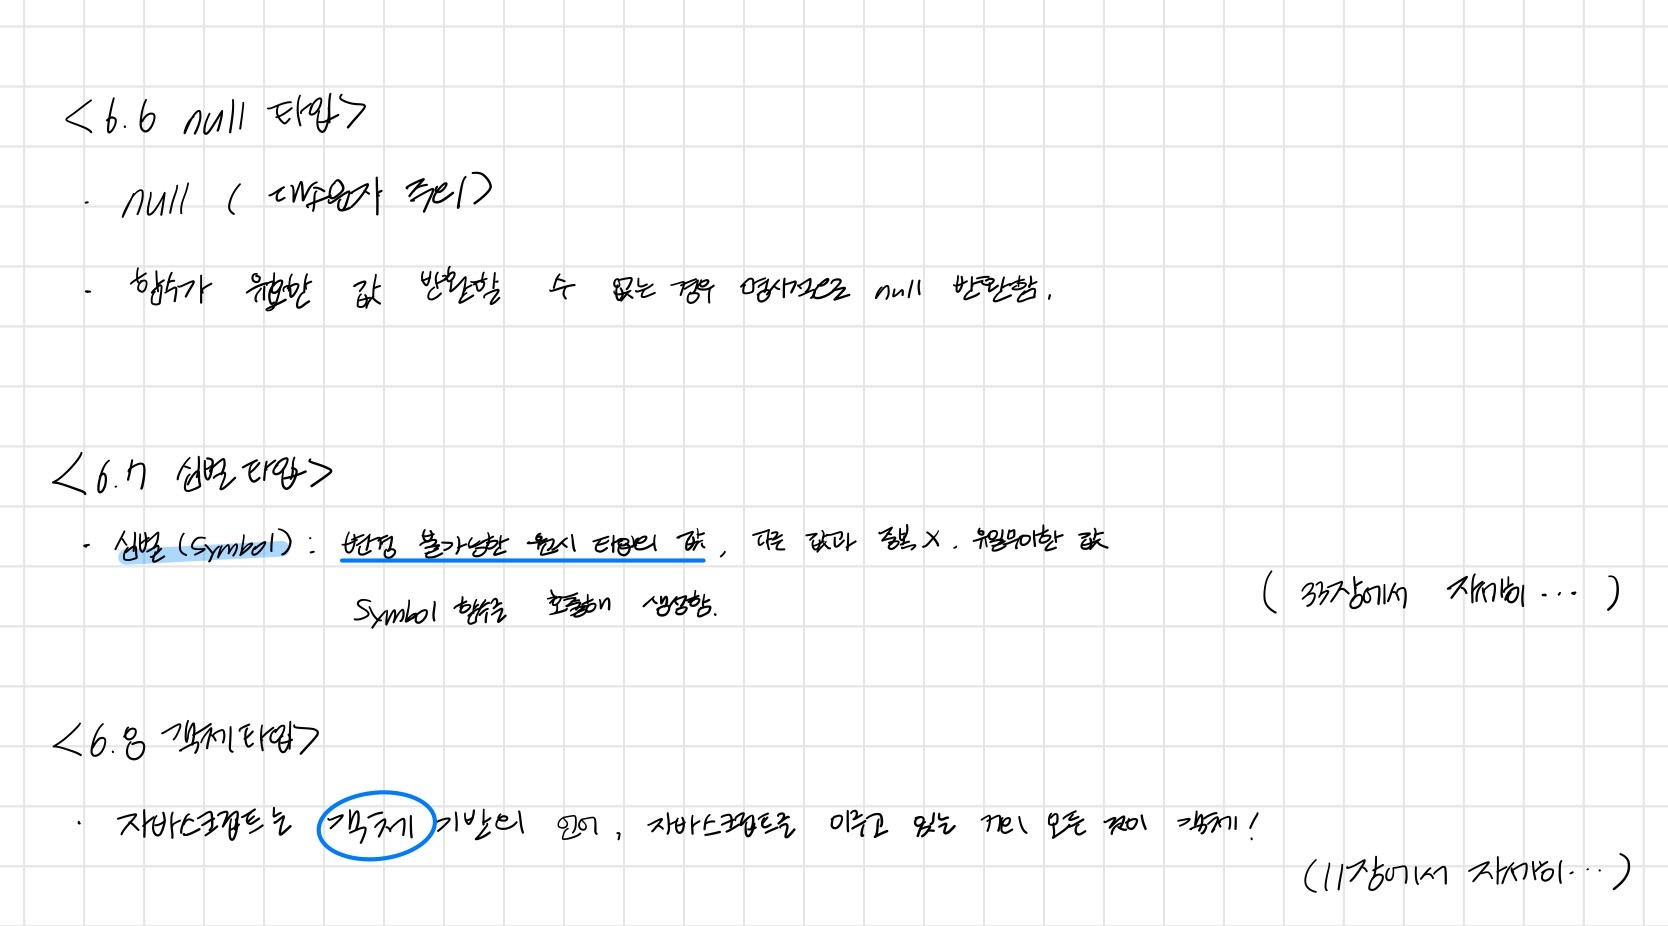 <6.6 null 타입>
· null ( 대소문자 주의)
· 함수가 유효한 값 반환할 수 없는 경우 명시적으로 null 반환함.
<6.7 심벌 타입>
· 심벌 (Symbol) : 변경 불가능한 원시 타입의 값, 다른 값과 중복 X. 유일무이한 값
Symbol 함수를 호출해 생성함.
( 33장에서 자세히 ... )
<6.8 객체 타입>
· 자바스크립트는 객체 기반의 언어, 자바스크립트를 이루고 있는 거의 모든 것이 객체!
(11장에서 자세히...)